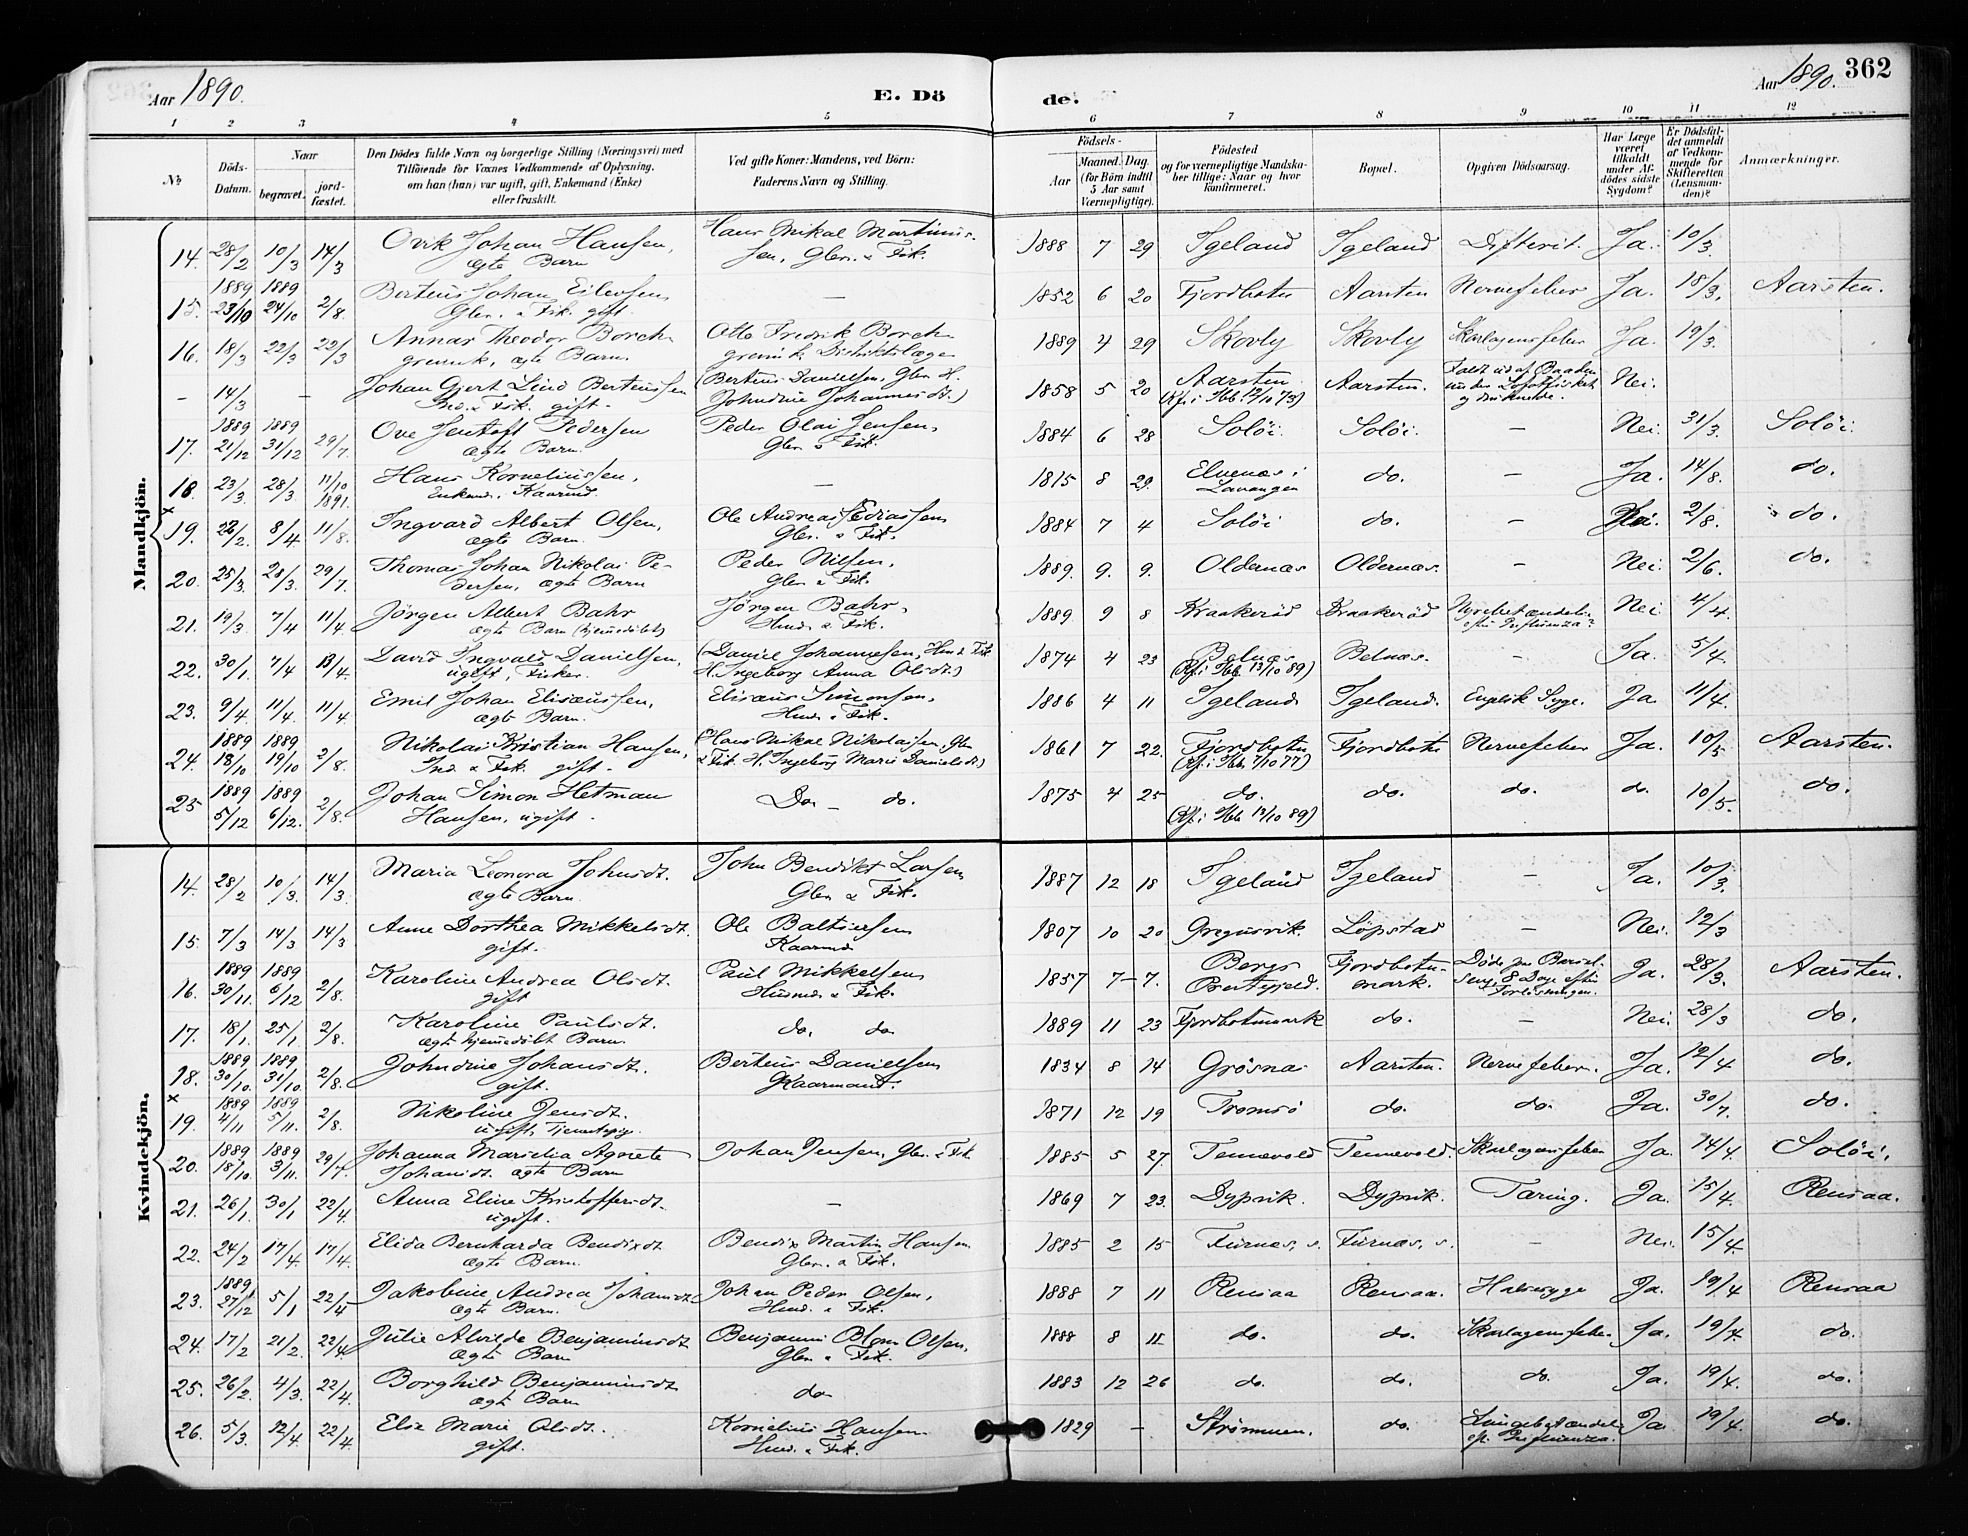 Aar 1890.
E. Dö
de.
Aar 1890.
362
1 2 3 4 5 6 7 8 9 10 11 12
№
Döds-Datum.
Naar
begravet.
jord-fæstet.
Den Dödes fulde Navn og borgerlige Stilling (Næringsvei) med
Tilföiende for Voxnes Vedkommende af Oplysning,
om han (hun) var ugift, gift, Enkemand (Enke)
eller fraskilt.
Ved gifte Koner: Mandens, ved Börn:
Faderens Navn og Stilling.
Födsels-
Aar
Maaned. Dag.
(for Börn indtil
5 Aar samt
Værnepligtige).
Födested
og for værnepligtige Mandska-
ber tillige: Naar og hvor
konfirmeret.
Bopæl.
Opgiven Dödsaarsag.
Har Læge
været
tilkaldt
under Af-
dödes sidste
Sygdom?
Er Dödsfal-
det anmeldt
af Vedkom-
mende for
Skifteretten
(Lensman-
den)?
Anmærkninger.
Mandkjön.
14. 28/2 10/3 14/3 Ovik Johan Hansen, Hans Mikal Martinus- 1888 7 29 Igeland Igeland Difterit. Ja. 10/3.
ægte Barn sen, Gbr. & Fisk.
15. 1889 23/10 1889 24/10 2/8. Berteus Johan Eilevsen — 1852 6 20 Fjordbotn Aarsten Nervefeber Ja. 18/3. Aarsten.
Gbr. & Fisk. gift.
16. 18/3 22/3 22/3 Annar Theodor Borch- Otto Fredrik Borch- 1889 4 29 Skovly Skovly Skarlagensfeber Ja. 19/3.
grevink, ægte Barn. grevink, Distriktslæge
– 14/3 — Johan Gjert Lind Berteussen (Berteus Danielsen, Gbr. H. 1858 5 20 Aarsten Aarsten. Faldt ud af Baaden Nei.
Ind. & Fisk. gift. Johndine Johannesdt.) (Kf. i Ibb. 12/10 73) under Lofotfisket
og druknede.
17. 1889 21/12 1889 31/12 29/7. Ove Jentoft Pedersen Peder Olai Jensen, 1884 6 28 Soløi. Soløi. — Nei. 31/3. Soløi.
ægte Barn. Gbr. & Fisk.
18. 23/3 28/3 11/10 1891. Hans Korneliussen, — 1815 8 29. Elvenæs i do. — Ja. 14/8. do.
Enkem., Kaarmd. Lavangen
x 19. 22/2. 8/4 11/8. Ingvard Albert Olsen, Ole Andreas Ediassen 1884 7 4 Soløi do. — Nei. 2/8. do.
ægte Barn. Gbr. & Fisk.
20. 25/3. 28/3. 29/7 Thomas Johan Nikolai Pe- Peder Nilsen, 1889. 9. 9. Oldernæs Oldernæs. — Nei. 2/6. do.
dersen, ægte Barn Gbr. & Fisk.
21. 19/3. 7/4 11/4. Jørgen Albert Bahr Jørgen Bahr, 1889 9 8 Kraakerød Kraakerød Nyrebetændelse Nei 4/4.
ægte Barn (hjemmedøbt) Husmd. & Fisk. efter Influenza?
22. 30/1. 7/4 13/4. David Ingvald Danielsen, (Daniel Johannesen, Hus & Fisk 1874 4 23 Belnæs Belnæs. — Ja. 5/4
ugift, Fisker. H. Ingeborg Anna Olsdt.) (Kf. i Ibb. 13/10 89)
23. 9/4. 11/4. 11/4 Emil Johan Elisæussen, Elisæus Simonsen, 1886 4 11 Igeland. Igeland. Engelsk Syge. Ja. 11/4.
ægte Barn. Husmd. & Fisk.
24. 1889 18/10 1889 19/10 2/8. Nikolai Kristian Hansen, (Hans Mikal Nikolaisen, Gbr 1861 7 22. Fjordbotn Fjordbotn Nervefeber Ja. 10/5 Aarsten.
Ind. & Fisk. gift. & Fisk. H. Ingeborg Marie Danielsdt.) (Kf. i Ibb. 7/10 77)
25 1889 5/12 1889 6/12. 2/8. Johan Simon Hetman Do — do. 1875 4 25 do. do. do. do. 10/5. do.
Hansen, ugift. (Kf. i Ibb. 13/10 89)
Kvindekjön.
14. 28/2 10/3. 14/3. Maria Leonora Johnsdt. John Bendikt Larsen 1887 12 18 Igeland Igeland — Ja. 10/3.
ægte Barn. Gbr. & Fisk.
15. 7/3 14/3 14/3 Anne Dorthea Mikkelsdt. Ole Baltsersen 1807 10 20 Gregusvik. Løpstad — Nei. 12/3
gift. Kaarmd.
16. 1889 30/11. 1889 6/12 2/8. Karoline Andrea Olsdt. Paul Mikkelsen 1857 7–7. Bergs Fjordbotn- Døde paa Barsel- Ja. 28/3. Aarsten.
gift Husmd. & Fisk. Præstegjeld. mark. seng 8 Dage efter
Forløsningen.
17. 18/1. 25/1 2/8. Karoline Paulsdt. do. do. 1889 11 23 Fjordbotnmark do. — Nei. 28/3 do.
ægte hjemmedøbt Barn.
18. 1889 30/10. 1889 31/10. 2/8. Johndine Johansdt. Berteus Danielsen 1834 8 14 Grøsnæs Aarsten. Nervefeber. Ja. 12/4 do.
gift. Kaarmand.
x 19. 1889 4/11 1889 5/11. 2/8. Nikoline Jensdt. 1871 12 19 Tromsø do. do. Ja. 30/7. do.
ugift, Tjenestepige.
20. 1889 18/10. 1889 3/11. 29/7. Johanna Marselia Agnete Johan Jensen, Gbr. & Fisk. 1885 5 27. Tennevold Tennevold. Skarlagensfeber Ja. 14/4. Soløi.
Johansdt. ægte Barn
21. 26/1. 30/1 22/4. Anna Eline Kristoffersdt. — 1869 7 23. Dypvik. Dypvik. Tæring. Ja. 15/4. Rensaa.
ugift.
22. 24/2 17/4. 17/4. Elida Bernharda Bendixdt Bendix Martin Hansen. 1885 2 15 Furnæs, s. Furnæs, s. — Nei. 15/4.
ægte Barn. Gbr. & Fisk.
23. 1889 27/12 5/1 22/4 Jakobine Andrea Johansdt. Johan Peder Olsen, 1888 7 11 Rensaa Rensaa. Halssyge Ja. 19/4. Rensaa
ægte Barn. Husmd. & Fisk.
24. 17/2 21/2. 22/4. Julie Alvilde Benjaminsdt Benjamin Blom Olsen, 1888 8 11 do. do. Skarlagensfeber Ja. 19/4. do.
ægte Barn Gbr. & Fisk.
25. 26/2 4/3. 22/4. Borghild Benjaminsdt do 1883 12 26 do. do. do. Ja. 19/4. do.
ægte Barn
26. 5/3. 12/4 22/4. Else Marie Olsdt. Kornelius Hansen. 1829 — Strømmen. do. Lungebetændelse Ja. 19/4. do.
gift. Husmd. & Fisk. eft. Influenza.